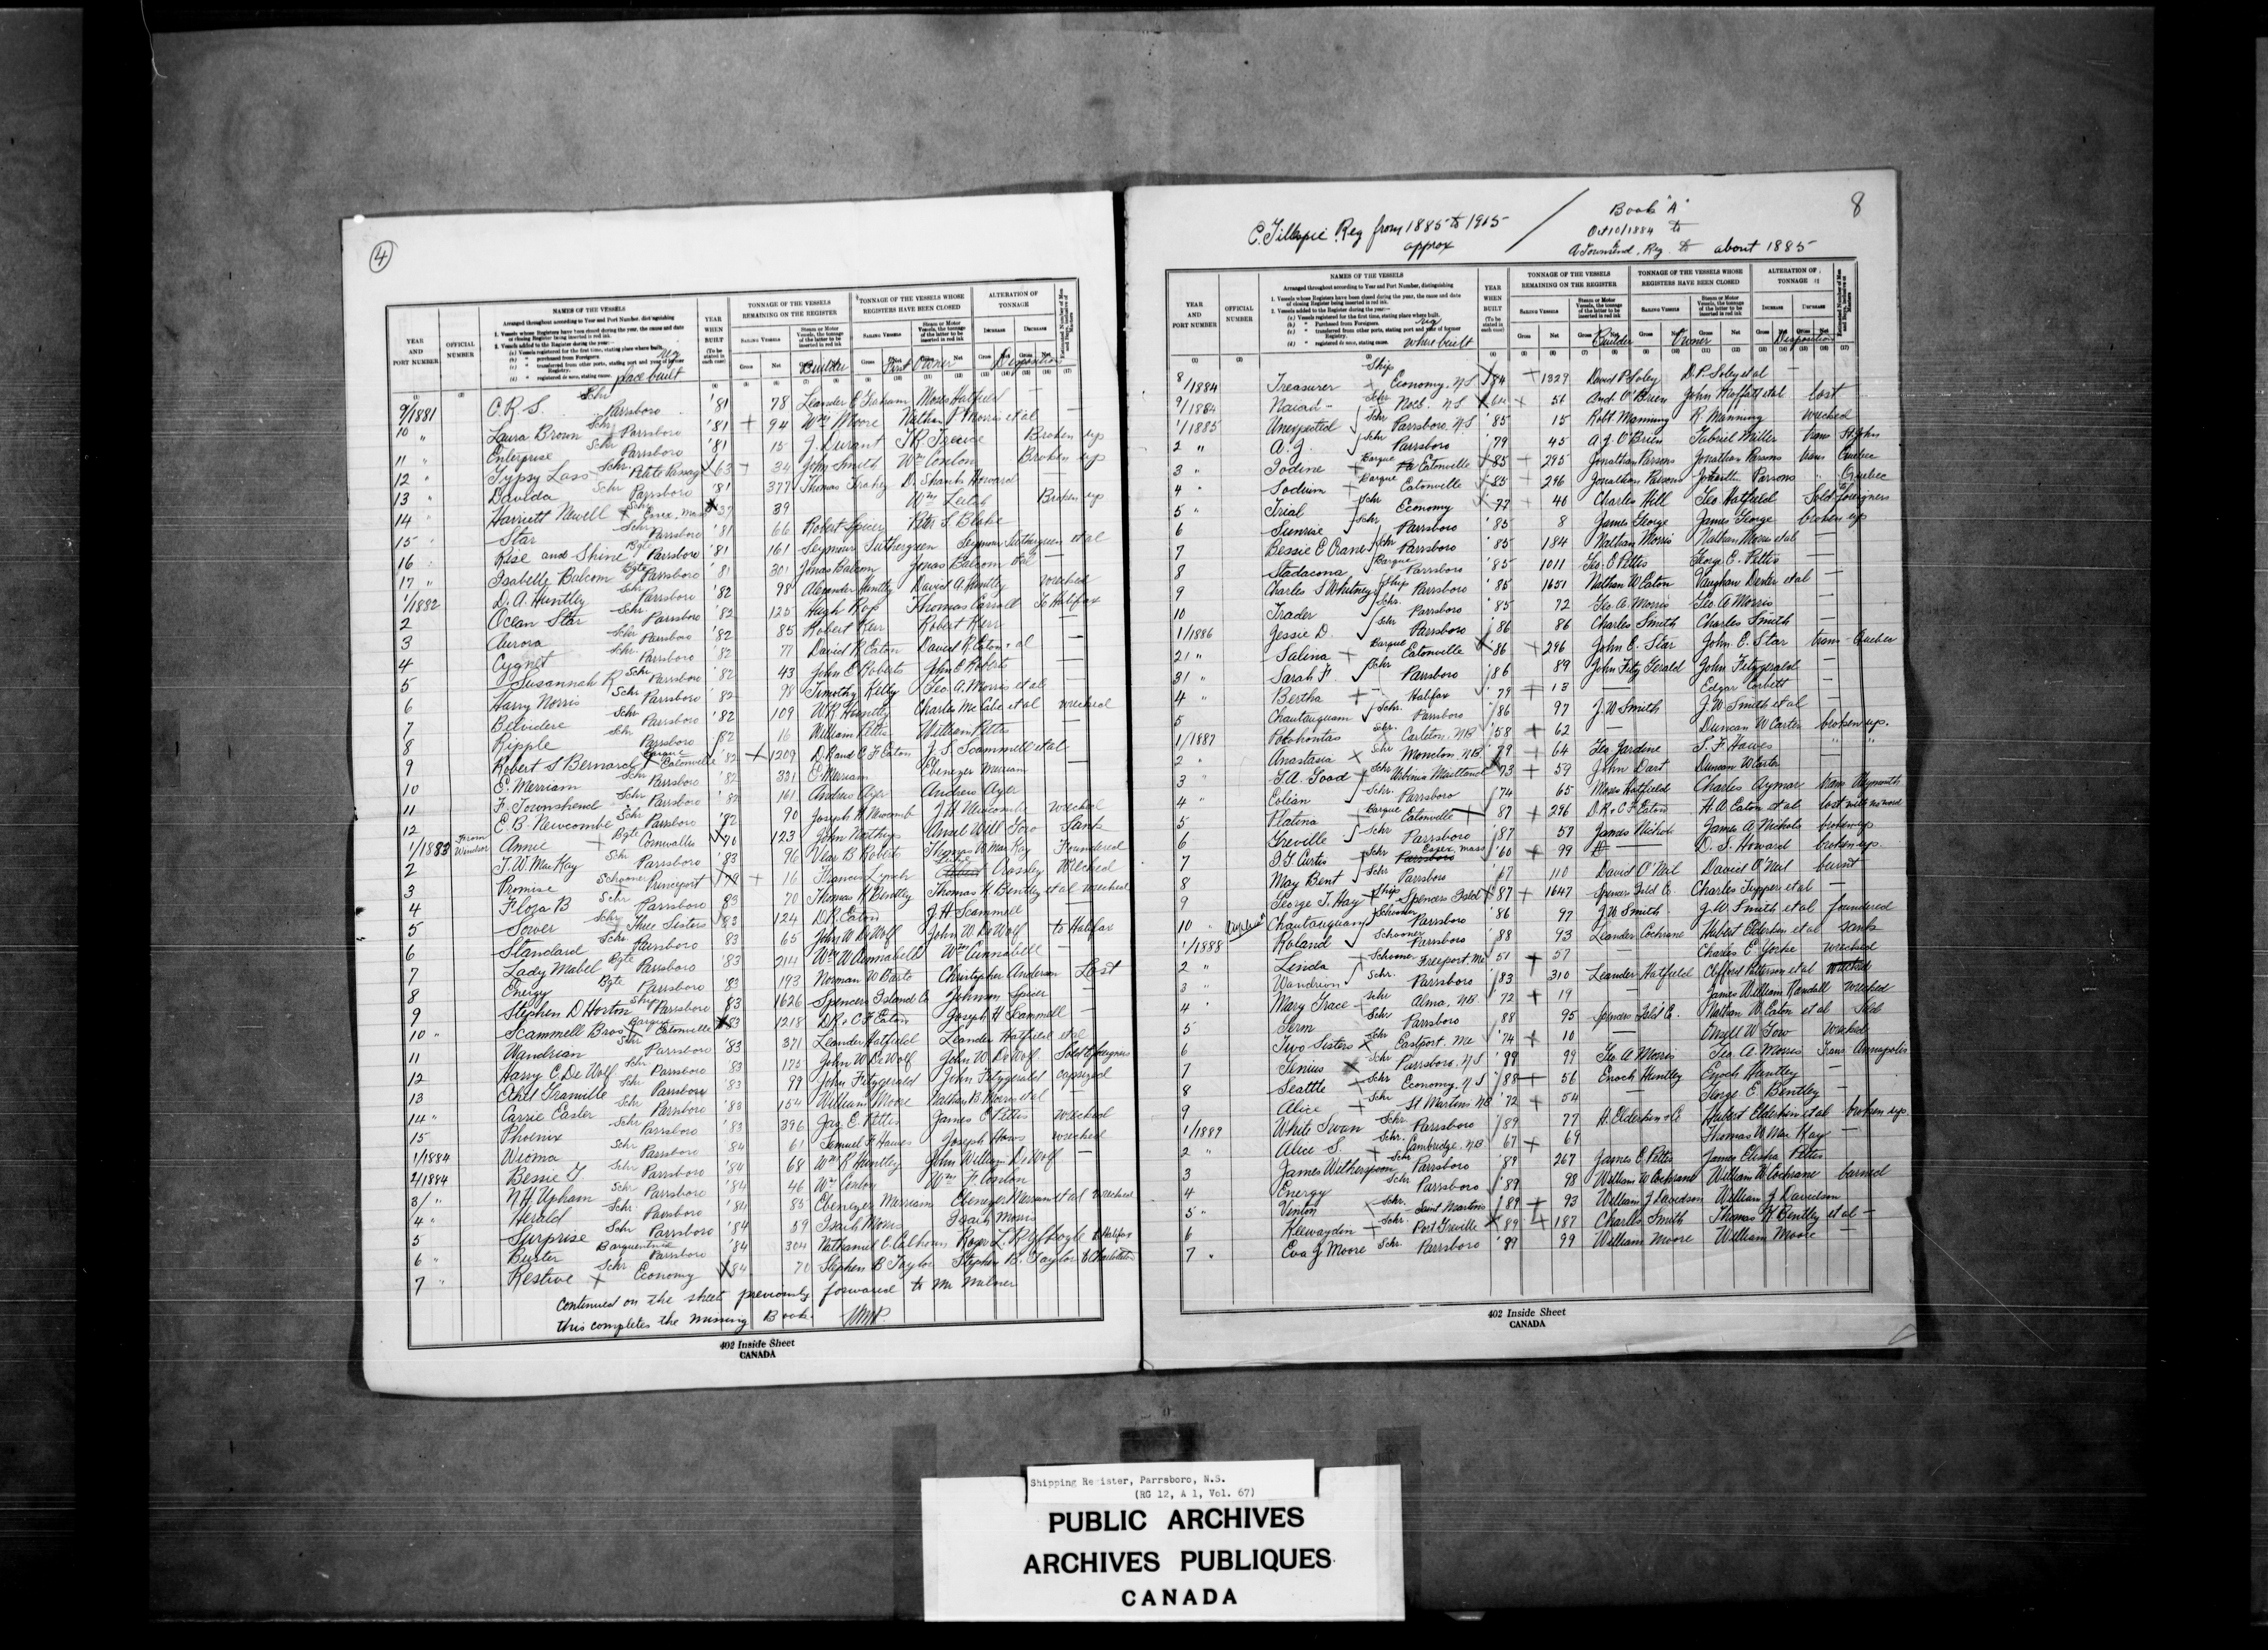 ④
YEAR AND PORT NUMBER OFFICIAL NUMBER NAMES OF THE VESSELS YEAR WHEN BUILT TONNAGE OF THE VESSELS REMAINING ON THE REGISTER TONNAGE OF THE VESSELS WHOSE REGISTERS HAVE BEEN CLOSED ALTERATION OF TONNAGE
place built Builder First Owner Disposition
9/1881 C.R.S. Schr Parrsboro '81 78 Leander E Graham Moses Hatfield —
10 " Laura Brown Schr Parrsboro '81 + 94 Wm Moore Nathan P Morris et al —
11 " Enterprise Schr Parrsboro '81 15 J. Durant Broken up
12 " Gypsy Lass Schr 63 + 34 John Smith Wm Conlon Broken up
13 " Davida Schr Parrsboro '81 377 Thomas D. Shanks Howard
14 " Harriett Newell x Schr Essex, Mass 37 89 Wm Leitch Broken up
15 " Star Schr Parrsboro '81 66 Robert Spicer Peter S. Blake
16 Rise and Shine Bgte Parrsboro '81 161 Seymour Suthergreen Seymour Suthergreen et al
17 " Isabella Balcom Bgte Parrsboro '81 301 Jonas Balcom Jonas Balcom et al —
1/1882 D. A. Huntley Schr Parrsboro '82 98 Alexander Huntley David A. Huntley wrecked
2 Ocean Star Schr Parrsboro '82 125 Hugh Ross Thomas Carroll To Halifax
3 Aurora Schr Parrsboro '82 85 Robert Kerr Robert Kerr —
4 Cygnet Schr Parrsboro '82 77 David R Eaton David R. Eaton et al —
5 Susannah R Schr Parrsboro '82 43 John E Roberts John E Roberts —
6 Harry Morris Schr Parrsboro '82 98 Timothy Kelly Geo. A. Morris et al —
7 Belvidere Schr Parrsboro '82 109 W.R. Huntly Charles McCabe et al wrecked
8 Ripple Schr Parrsboro '82 16 William Pettis William Pettis
9 Robert S Bernard x Barque Eatonville '82 + 1209 D.R and C.F. Eaton J. S. Scammell et al
10 E. Merriam Schr Parrsboro '82 331 E Merriam Ebenezer Merriam —
11 F. Townshend Schr Parrsboro '82 161 Andrew Ager Andrew Ager —
12 E. B. Newcombe Schr Parrsboro '82 90 Joseph H Newcomb J H Newcombe wrecked
1/1883 From Windsor Annie + Bgte Cornwallis 70 123 John Northup Ansel Will Sank
2 T. W. MacKay Schr Parrsboro '83 96 B Roberts Thomas W MacKay Foundered
3 Promise Schooner Princeport 79 + 16 Francis Lynch Crossley Wrecked
4 Flora B Schr Parrsboro 83 70 Thomas H Bentley Thomas H Bentley et al wrecked
5 Sower Schr Three Sisters '83 124 D.R. Eaton J. H Scammell —
6 Standard Schr Parrsboro 83 65 John W DeWolf John W. DeWolf to Halifax
7 Lady Mabel Bgte Parrsboro '83 214 Wm W Cunnabell Wm Cunnabell —
8 Energy Bgte Parrsboro '83 193 Norman W Christopher Anderson Lost
9 Stephen D Horton Ship Parrsboro 83 1626 Spencers Island Co Johnson Spicer —
10 " Scammell Bros x Barque Eatonville 83 1218 D.R. & C F Eaton Joseph H Scammell —
11 Wandrian Schr Parrsboro '83 371 Leander Hatfield Leander Hatfield et al
12 Harry C. De Wolf Schr Parrsboro '83 175 John W DeWolf John W. DeWolf Sold to foreigners
13 Ethel Granville Schr Parrsboro '83 99 John Fitzgerald John Fitzgerald capsized
14 " Carrie Easler Schr Parrsboro '83 154 William Moore Nathan B. Morris et al
15 Phoenix Schr Parrsboro '83 396 Jay E. Pettis James E Pettis wrecked
1/1884 Wioma Schr Parrsboro 84 61 Samuel F. Hawes Joseph Hawes wrecked
2/1884 Bessie G Schr Parrsboro '84 68 Wm R Huntley John William DeWolf —
3/ " N.H. Upham Schr Parrsboro '84 46 Wm Conlon Wm F Conlon
4 " Herald Schr Parrsboro '84 85 Ebenezer Merriam Ebenezer Merriam et al wrecked
5 Surprise Schr Parrsboro '84 59 Isaiah Morris Isaiah Morris
6 " Buster Barquentine Parrsboro '84 304 Nathaniel C. Calhoun to Halifax
7 " Restive + Schr Economy 84 70 Stephen B Taylor Stephen B. Taylor
continued on the sheet previously forwared to Mr Milner
this completes the missing Book.
402 Inside Sheet
CANADA
8
C. Gillespie Reg from 1885 to 1915 approx / Book "A"
Oct 10/1884 to
A Townsend, Reg. to about 1885
YEAR AND PORT NUMBER OFFICIAL NUMBER NAMES OF THE VESSELS YEAR WHEN BUILT TONNAGE OF THE VESSELS REMAINING ON THE REGISTER TONNAGE OF THE VESSELS WHOSE REGISTERS HAVE BEEN CLOSED ALTERATION OF TONNAGE
where built Builder Owner Disposition
8/1884 Treasurer x Ship Economy, N S 84 + 1329 David P Soley D. P. Soley et al —
9/1884 Naiad Schr N S 64 + 51 And. O'Brien John Moffatt et al lost
1/1885 Unexpected Schr Parrsboro, N S '85 15 Robt. Manning R. Manning wrecked
2 " A. J. Schr Parrsboro '79 45 A. J. O'Brien Gabriel Miller trans St. John
3 " Iodine + Barque Eatonville 85 + 295 Jonathan Parsons Jonathan Parsons trans Quebec
4 " Sodium + Barque Eatonville 85 + 296 Jonathan Parsons Johnathan Parsons " Quebec
5 " Trial + Schr Economy 77 + 40 Charles Hill Geo. Hatfield Sold foreigners
6 Sunrise Schr Parrsboro '85 8 James George James George broken up
7 Bessie E Crane Schr Parrsboro '85 184 Nathan Morris Nathan Morris et al —
8 Stadacona Barque Parrsboro '85 1011 Geo. E Pettis George E. Pettis —
9 Charles S Whitney Ship Parrsboro '85 1651 Nathan W Eaton Vaughan Dexter et al —
10 Trader Schr. Parrsboro '85 72 Geo. A. Morris Geo. A Morris —
1/1886 Jessie D. Schr Parrsboro '86 86 Charles Smith Charles Smith —
21 " Salina + Barque Eatonville 86 + 296 John E. Star John E. Star trans - Quebec
31 " Sarah F. Schr Parrsboro '86 89 John Fitz Gerald John Fitzgerald —
4 " Bertha + Halifax '79 + 13 — Edgar Corbett —
5 Chautauquan Schr. Parrsboro '86 97 J. W Smith J. W. Smith et al —
1/1887 Pocahontas Schr. Carleton, NB '58 + 62 — Duncan W Carter broken up.
2 " Anastasia x Schr Moncton, NB + 64 Geo Jardine S. F. Hawes " "
3 " Schr 73 + 59 John Dart Duncan W Carter
4 " Eolian Schr. Parrsboro '74 65 Moses Hatfield Charles Aymar trans Weymouth
5 Platina Barque Eatonville + 87 + 296 D.R. & C F Eaton H. A. Eaton et al lost with no word
6 Greville Schr Parrsboro '87 57 James Nichols James A Nichols broken up
7 Schr Essex, Mass '60 + 99 — D. S. Howard broken up.
8 May Bent Schr Parrsboro '67 110 David O'Neil David O'Neil burnt
9 George T. Hay + Ship Spencers Isld 87 + 1647 Spencers Isld Co. Charles Tupper et al —
10 " Chautauquan Schooner Parrsboro '86 97 J W Smith J. W. Smith et al foundered
1/1888 Roland Schooner Parrsboro '88 93 Leander Cochrane Hubert Elderkin et al sank
2 " Linda + Schooner Freeport, Me 51 + 57 Charles E Yorke wrecked
3 " Wandrian Schr. Parrsboro '83 310 Leander Hatfield Clifford Patterson et al wrecked
4 " Mary Grace Schr Alma, NB 72 + 19 — James William Randall wrecked
5 Germ Schr Parrsboro 88 95 Spencers Isld Co. Nathan W. Eaton et al sold
6 Two Sisters x Schr Eastport, Me '74 + 10 — wrecked
7 Genius x Schr Parrsboro, N S '89 99 Geo. A Morris Geo. A. Morris Trans. Annapolis
8 Seattle + Schr Economy, N S '88 + 56 Enoch Huntley Enoch Huntley —
9 Alice + Schr St Martins NB '72 + 54 — George E. Bentley —
1/1889 White Swan Schr. Parrsboro '89 77 H. Elderkin & Co Hubert Elderkin et al broken up.
2 " Alice S. + Schr. Cambridge, NB 67 + 69 Thomas W. MacKay —
3 James Witherspoon Schr Parrsboro '89 267 James E Pettis James Elisha Pettis
4 Energy Schr Parrsboro '89 98 William W Cochrane William W. Cochrane burned
5 " Vinton x Schr. Saint Martins '89 + 93 William J Davidson William J Davidson
6 Keewaydin + Schr. Port Greville 89 187 Charles Smith Thomas K Bentley et al —
7 " Eva J Moore Schr. Parrsboro '89 99 William Moore William Moore —
402 Inside Sheet
CANADA
Shipping Register, Parrsboro, N.S.
(RG 12, A 1, Vol. 67)
PUBLIC ARCHIVES
ARCHIVES PUBLIQUES
CANADA